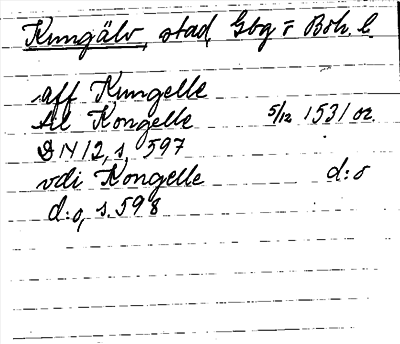 Kungälv, stad, Gbg o Boh. l.
aff Kungelle
til Kongelle 5/12 1531 or.
DN 12, s, 597
vdi Kongelle d:o
d:o, s. 598